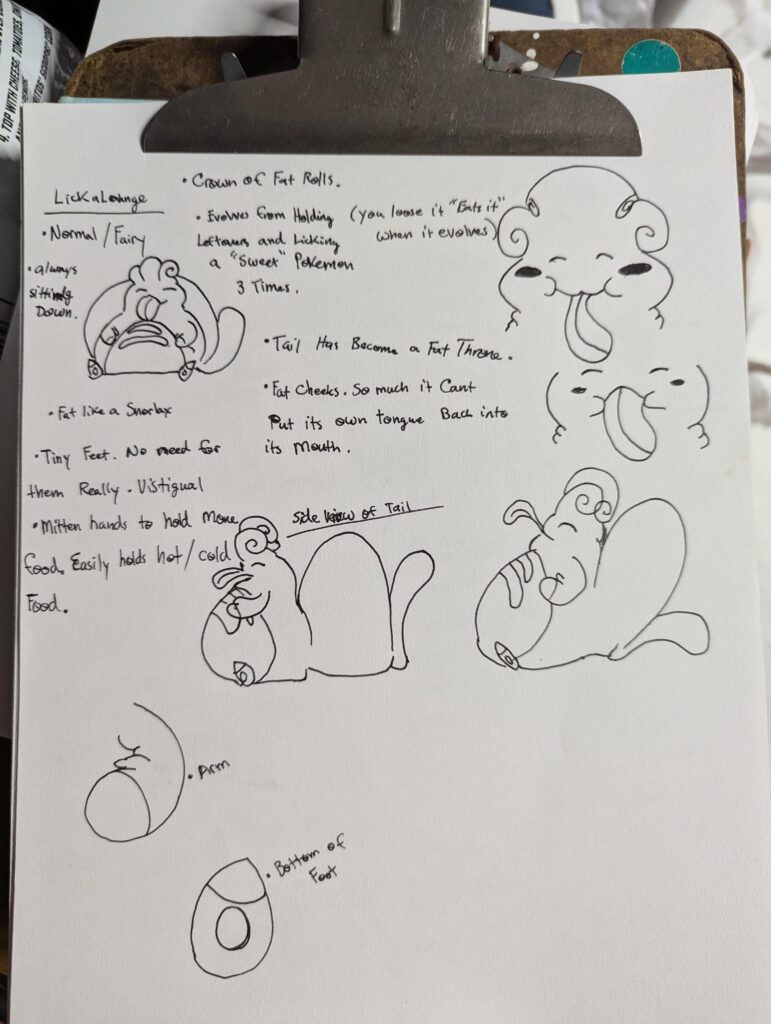 4. TOP WITH CHEESE, TOMATOES, ON
LickaLounge
• Normal/Fairy
• always
sitting
Down.
• Crown of Fat Rolls.
• Evolves from Holding (you loose it "Eats it"
Leftovers and Licking when it evolves)
a "Sweet" Pokemon
3 Times.
• Tail Has Become a Fat Throne.
• Fat Cheeks. So much it Cant
Put its own tongue Back into
its Mouth.
• Fat like a Snorlax
• Tiny Feet. No need for
them Really. Vistigual
• Mitten hands to hold More
food. Easily holds hot/cold
Food.
Side view of Tail
• Arm
• Bottom of
Foot